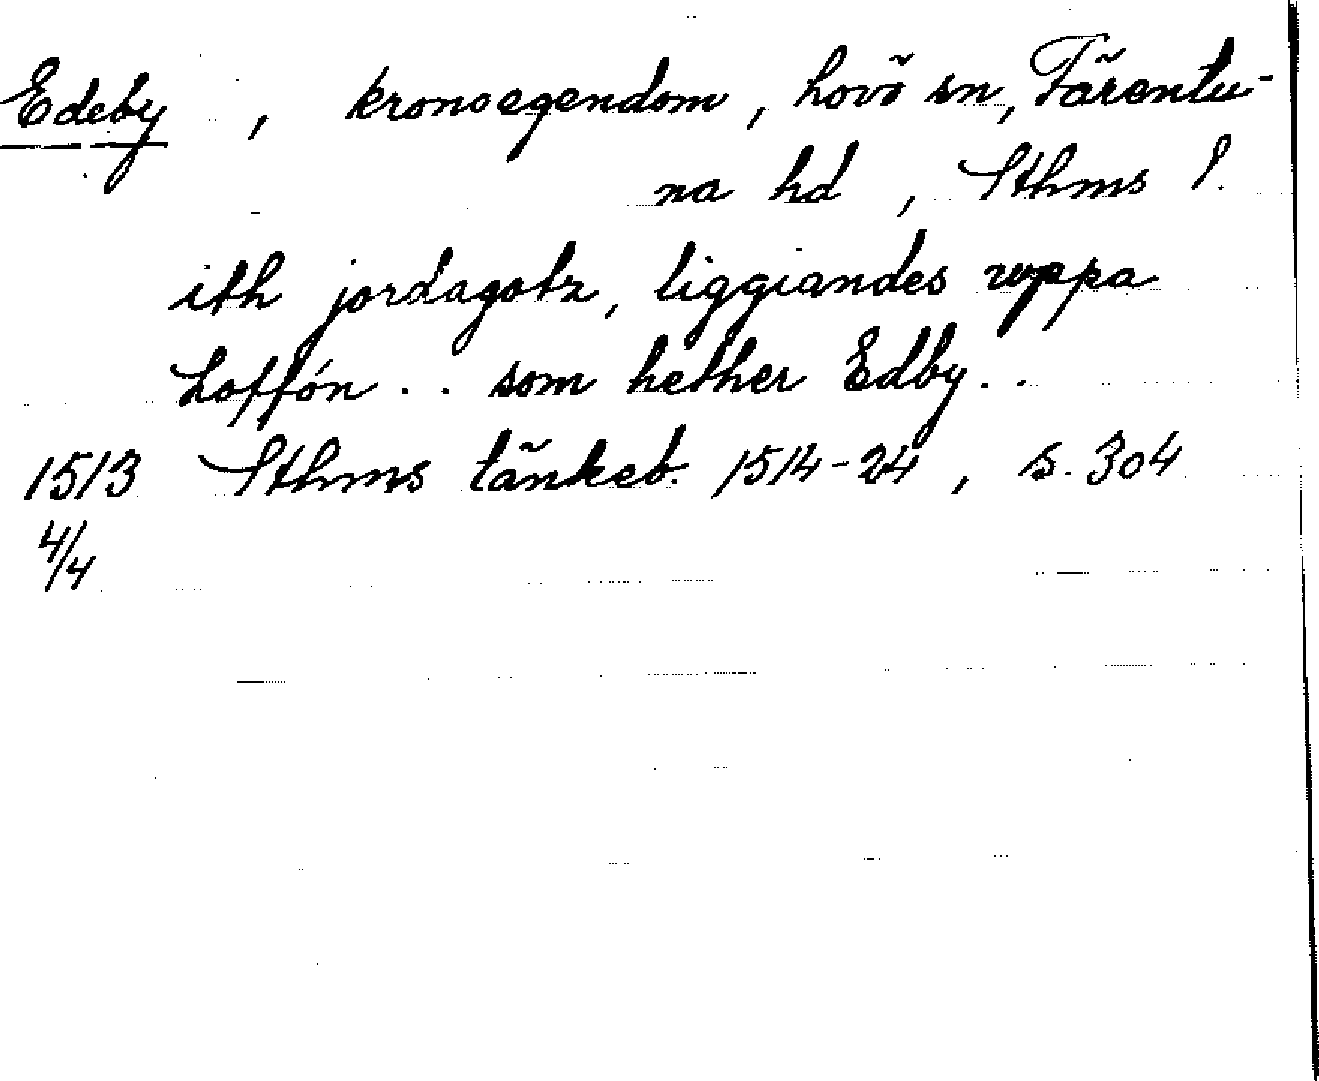 Edeby, kronoegendom, Lovö sn, Färentu-
na hd, Sthms l.
ith jordagotz, liggiandes uppa
Loffón .. som hether Edby ..
1513 Sthms tänkeb. 1514-24, s. 304
4/4